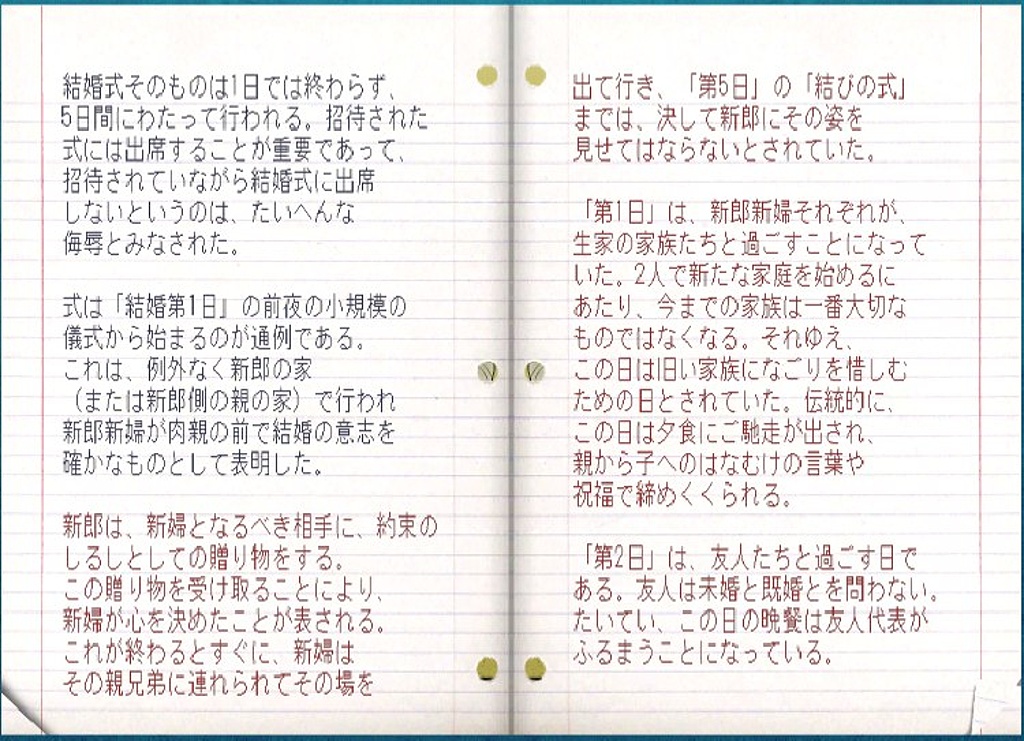 結婚式そのものは1日では終わらず、
5日間にわたって行われる。招待された
式には出席することが重要であって、
招待されていながら結婚式に出席
しないというのは、たいへんな
侮辱とみなされた。
式は「結婚第1日』の前夜の小規模の
儀式から始まるのが通例である。
これは、例外なく新郎の家
（または新郎側の親の家）で行われ
新郎新婦が肉親の前で結婚の意志を
確かなものとして表明した。
新郎は、新婦となるべき相手に、約束の
しるしとしての贈り物をする。
この贈り物を受け取ることにより、
新婦が心を決めたことが表される。
これが終わるとすぐに、新婦は
その親兄弟に連れられてその場を
出て行き、「第5日」の「結びの式」
までは、決して新郎にその姿を
見せてはならないとされていた。
「第1日」は、新郎新婦それぞれが、
生家の家族たちと過ごすことになって
いた。2人で新たな家庭を始めるに
あたり、今までの家族は一番大切な
ものではなくなる。それゆえ、
この日は旧い家族になごりを惜しむ
ための日とされていた。伝統的に、
この日は夕食にご馳走が出され、
親から子へのはなむけの言葉や
祝福で締めくくられる。
「第2日」は、友人たちと過ごす日で
ある。友人は未婚と既婚とを問わない。
たいてい、この日の晩餐は友人代表が
ふるまうことになっている。